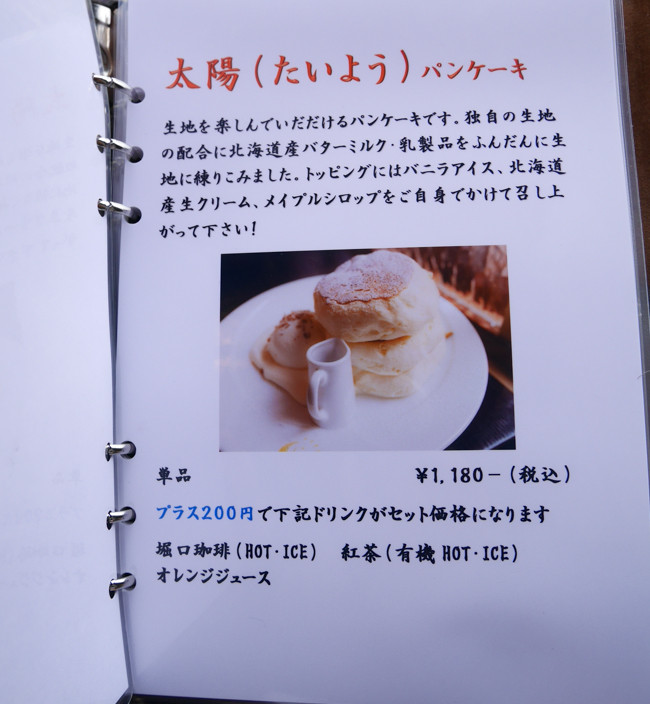 太陽(たいよう)パンケーキ
生地を楽しんでいだだけるパンケーキです。独自の生地
の配合に北海道産バターミルク・乳製品をふんだんに生
地に練りこみました。トッピングにはバニラアイス、北海道
産生クリーム、メイプルシロップをご自身でかけて召し上
がって下さい!
単品 ¥1,180－(税込)
プラス200円で下記ドリンクがセット価格になります
堀口珈琲(HOT・ICE) 紅茶(有機HOT・ICE)
オレンジジュース